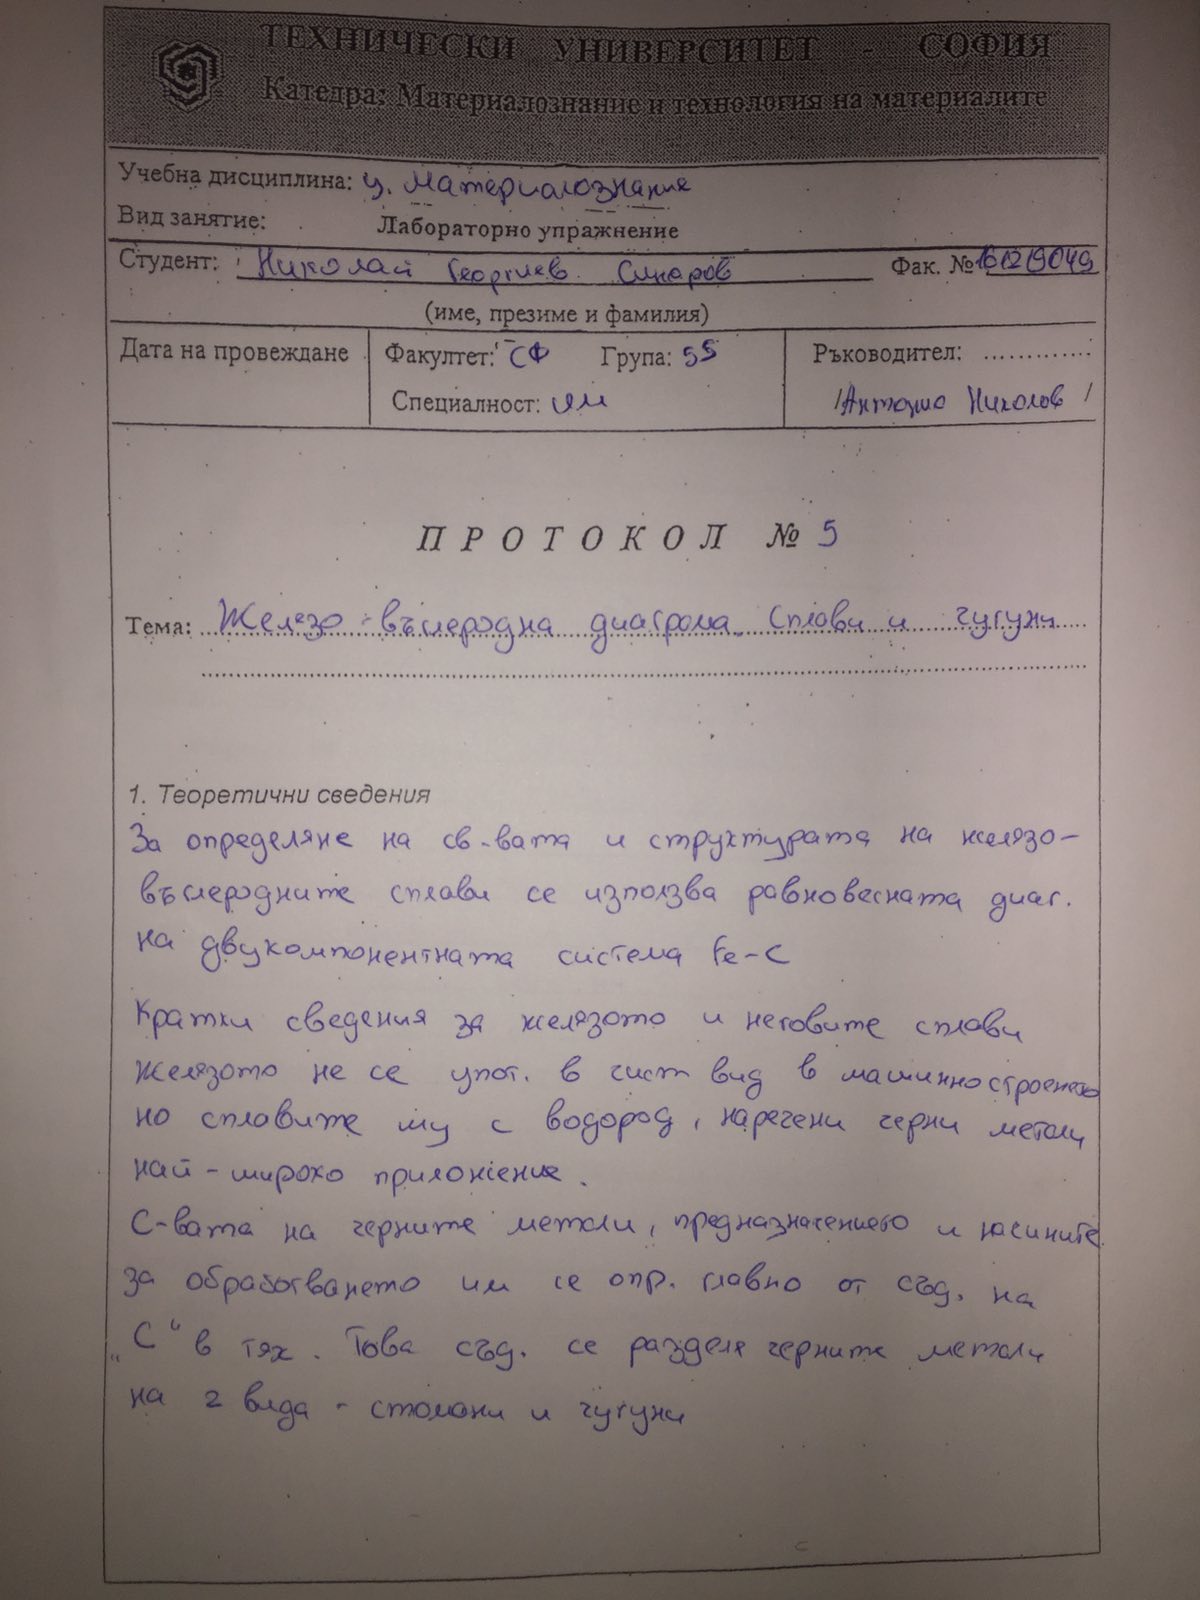 ТЕХНИЧЕСКИ УНИВЕРСИТЕТ - СОФИЯ
Катедра: Материалознание и технология на материалите
Учебна дисциплина: Материалознание
Вид занятие: Лабораторно упражнение
Студент: Николай Георгиев Фак. №
(име, презиме и фамилия)
Дата на провеждане Факултет: СФ Група: 55 Ръководител: ..............
Специалност: ИМ /Антонио Николов/
ПРОТОКОЛ № 5
Тема: Желязо-въглеродна диаграма. Сплави и чугуни
1. Теоретични сведения
За определяне на св-вата и структурата на желязо-
въглеродните сплави се използва равновесната диаг.
на двукомпонентната система Fe-C
Кратки сведения за желязото и неговите сплави
Желязото не се упот. в чист вид в машинностроенето
но сплавите му с водород, наречени черни метали
най-широко приложение.
С-вата на черните метали, предназначението и начините
за обработването им се опр. главно от съд. на
„С“ в тях. Това съд. се разделя черните метали
на 2 вида - стомани и чугуни